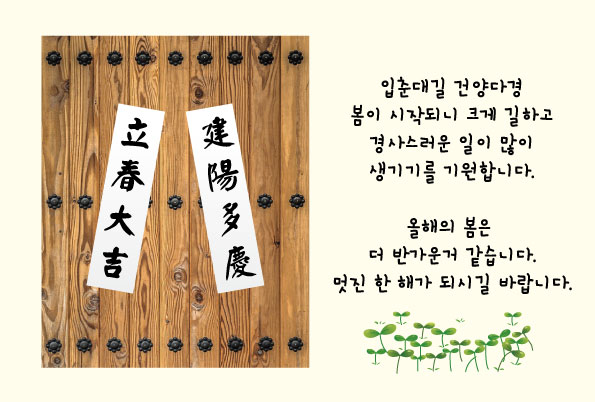 立春大吉
建陽多慶
입춘대길 건양다경
봄이 시작되니 크게 길하고
경사스러운 일이 많이
생기기를 기원합니다.
올해의 봄은
더 반가운거 같습니다.
멋진 한 해가 되시길 바랍니다.